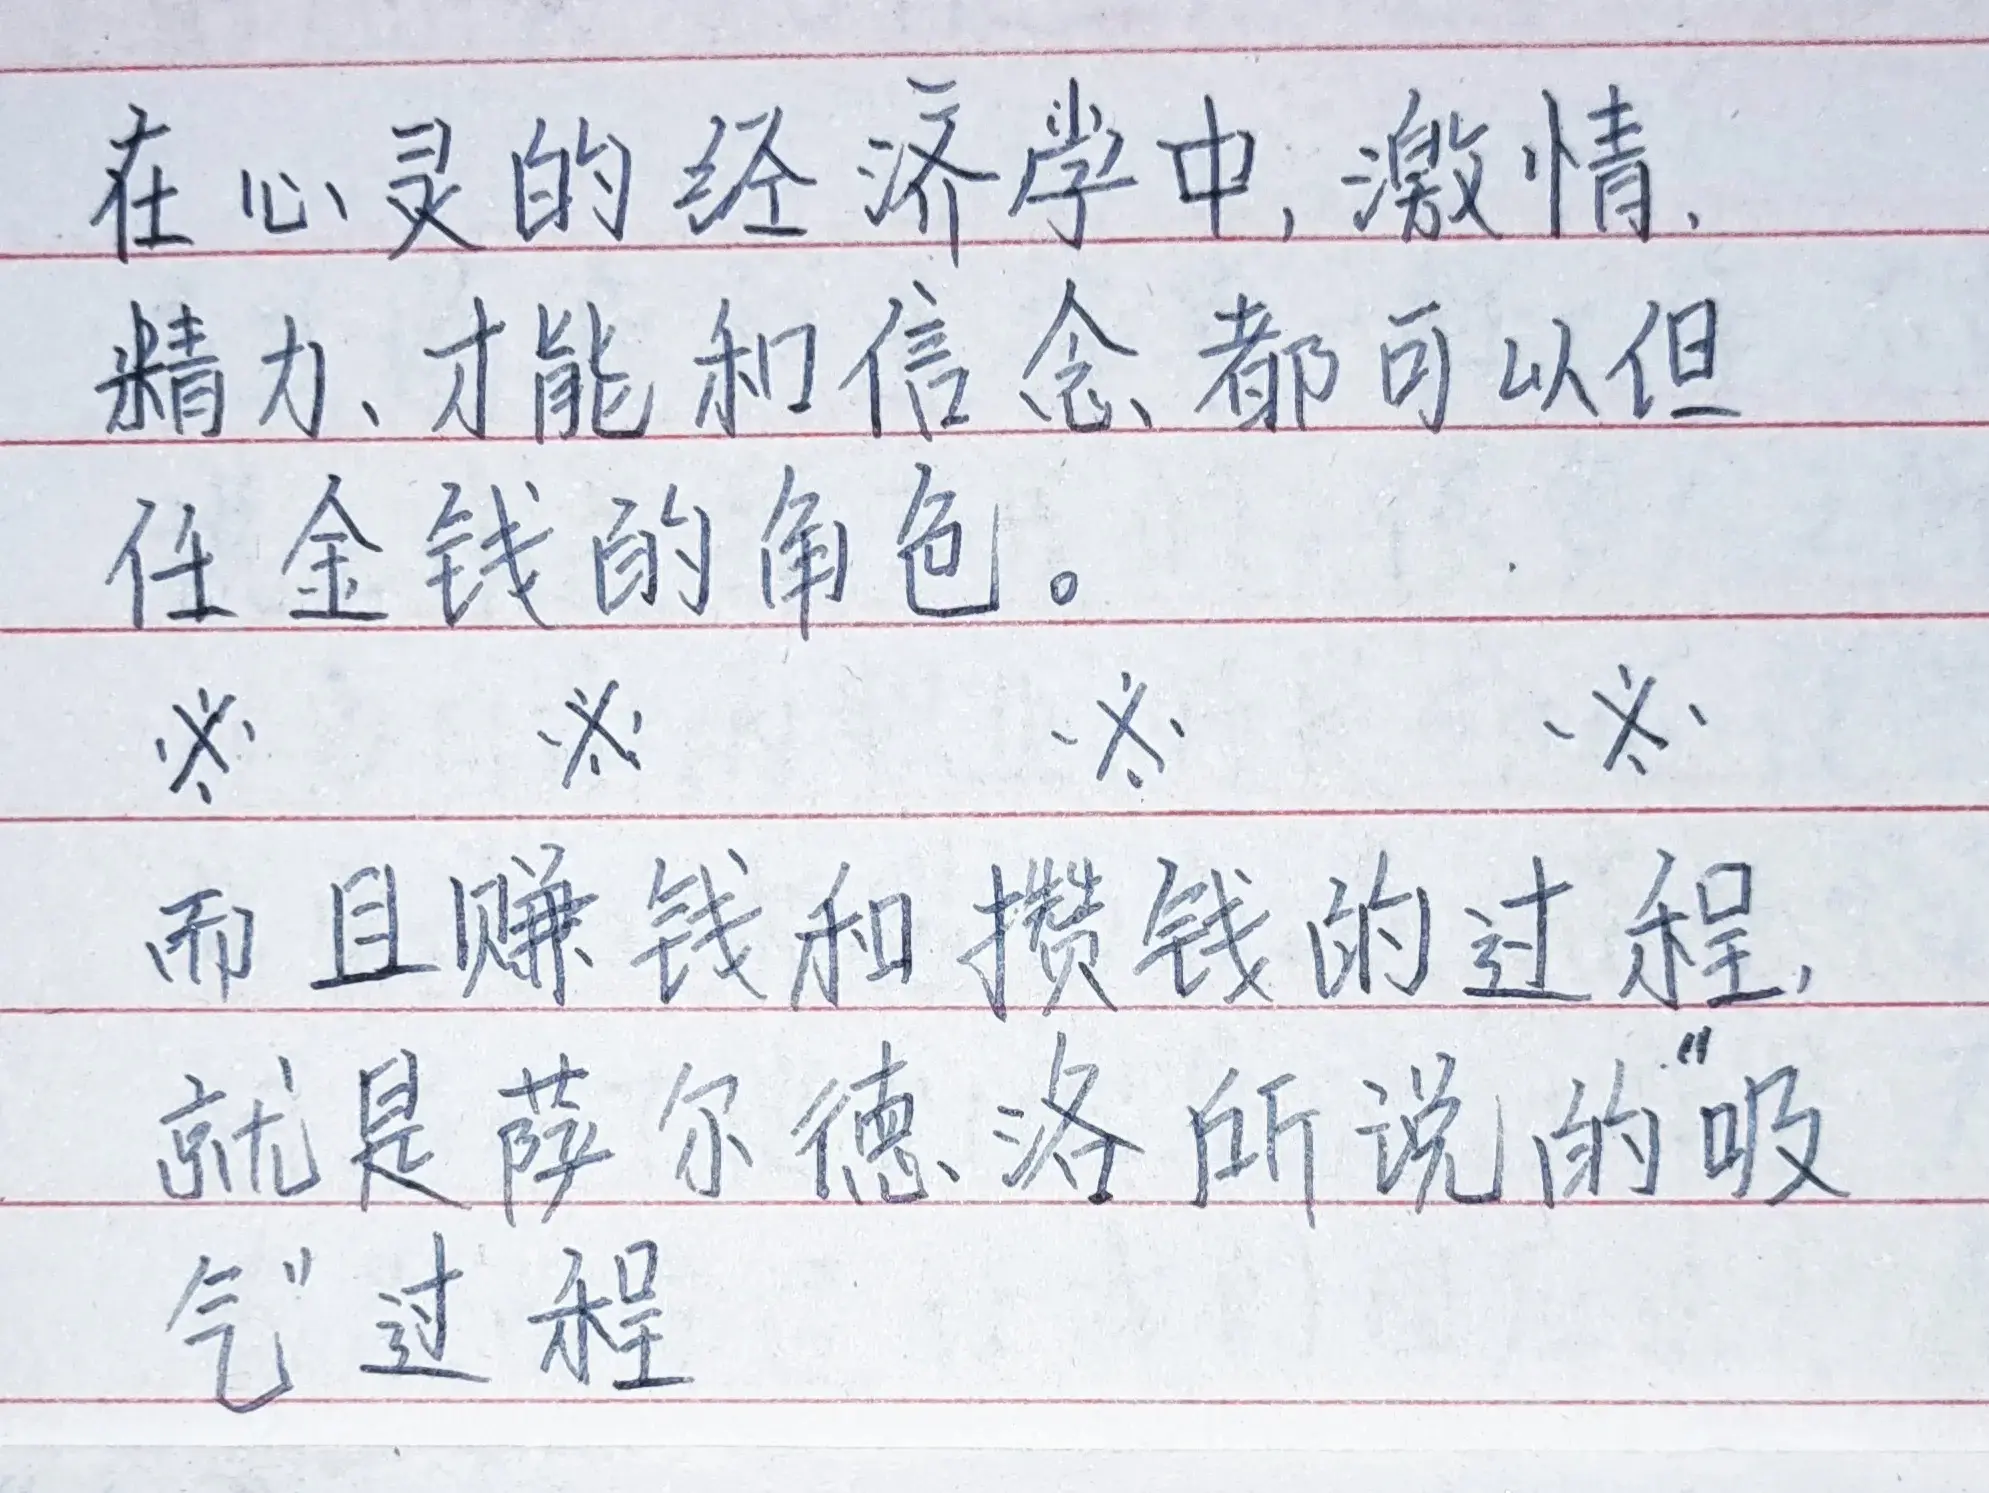 在心灵的经济学中,激情、
精力、才能和信念、都可以但
任金钱的角色。
※ ※ ※ ※
而且赚钱和攒钱的过程,
就是萨尔德、洛所说的"吸
气"过程